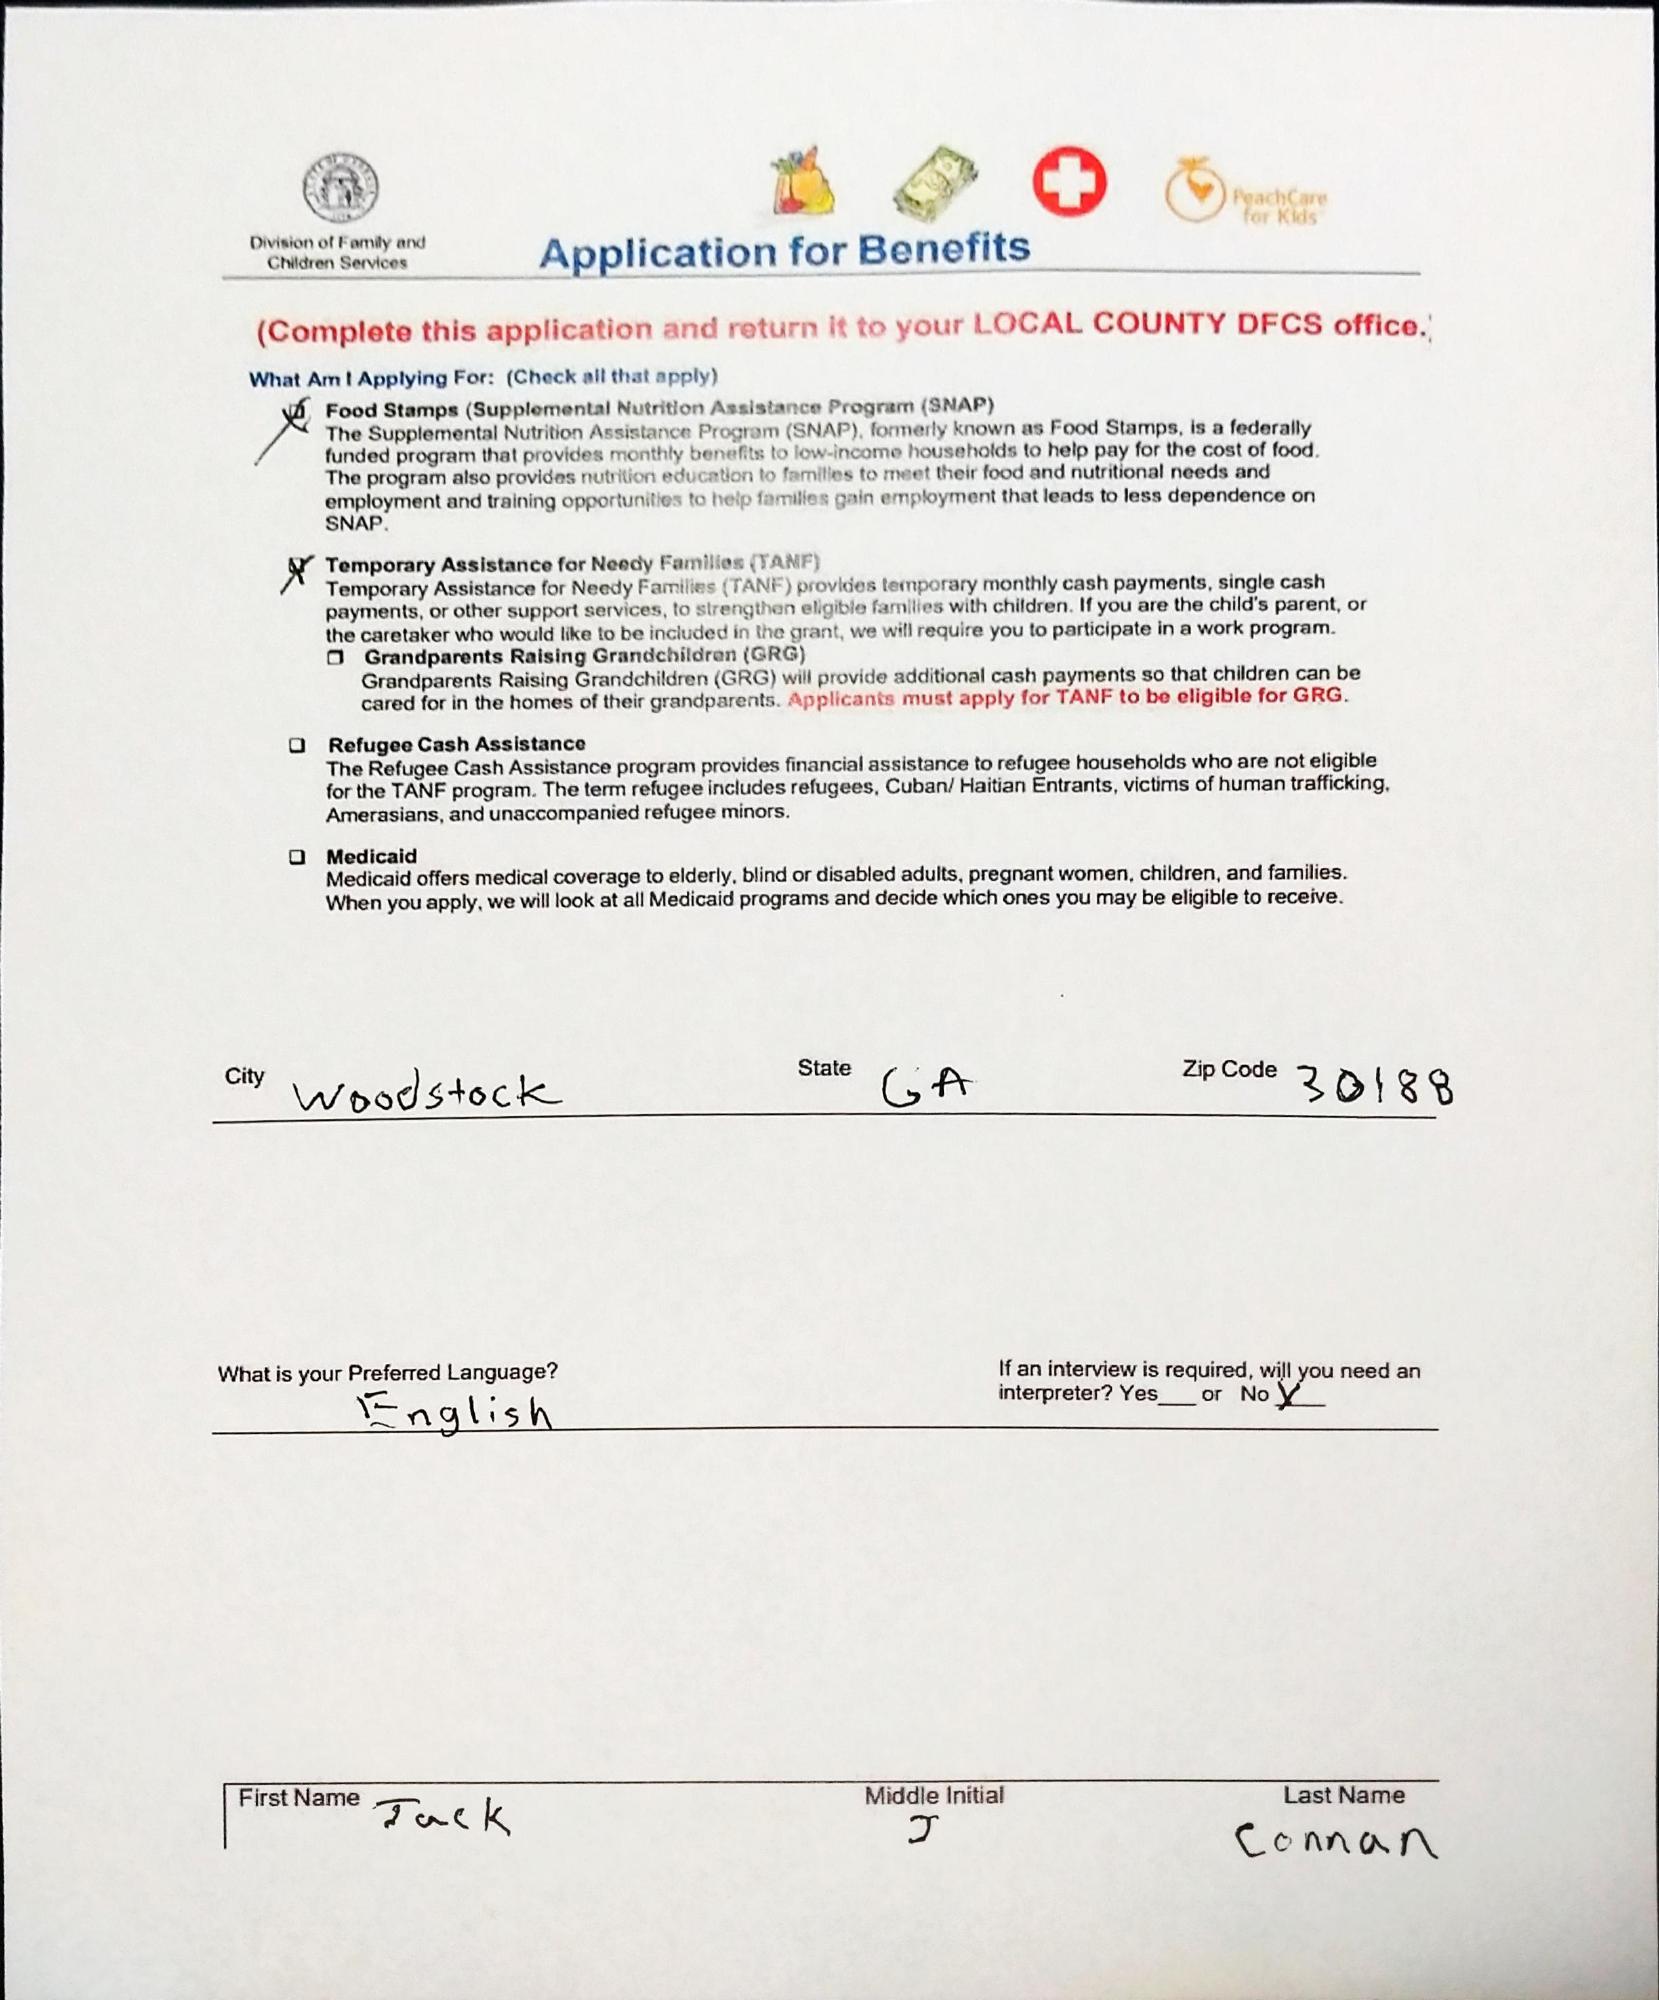 PeachCare
for Kids
Division of Family and
Children Services
Application for Benefits
(Complete this application and return it to your LOCAL COUNTY DFCS office.)
What Am I Applying For: (Check all that apply)
Food Stamps (Supplemental Nutrition Assistance Program (SNAP)
The Supplemental Nutrition Assistance Program (SNAP), formerly known as Food Stamps, is a federally
funded program that provides monthly benefits to low-income households to help pay for the cost of food.
The program also provides nutrition education to families to meet their food and nutritional needs and
employment and training opportunities to help families gain employment that leads to less dependence on
SNAP.
Temporary Assistance for Needy Families (TANF)
Temporary Assistance for Needy Families (TANF) provides temporary monthly cash payments, single cash
payments, or other support services, to strengthen eligible families with children. If you are the child's parent, or
the caretaker who would like to be included in the grant, we will require you to participate in a work program.
❑ Grandparents Raising Grandchildren (GRG)
Grandparents Raising Grandchildren (GRG) will provide additional cash payments so that children can be
cared for in the homes of their grandparents. Applicants must apply for TANF to be eligible for GRG.
❑ Refugee Cash Assistance
The Refugee Cash Assistance program provides financial assistance to refugee households who are not eligible
for the TANF program. The term refugee includes refugees, Cuban/ Haitian Entrants, victims of human trafficking,
Amerasians, and unaccompanied refugee minors.
❑ Medicaid
Medicaid offers medical coverage to elderly, blind or disabled adults, pregnant women, children, and families.
When you apply, we will look at all Medicaid programs and decide which ones you may be eligible to receive.
City Woodstock State GA Zip Code 30188
What is your Preferred Language? If an interview is required, will you need an
English interpreter? Yes___ or No X
First Name Jack Middle Initial J Last Name Connan